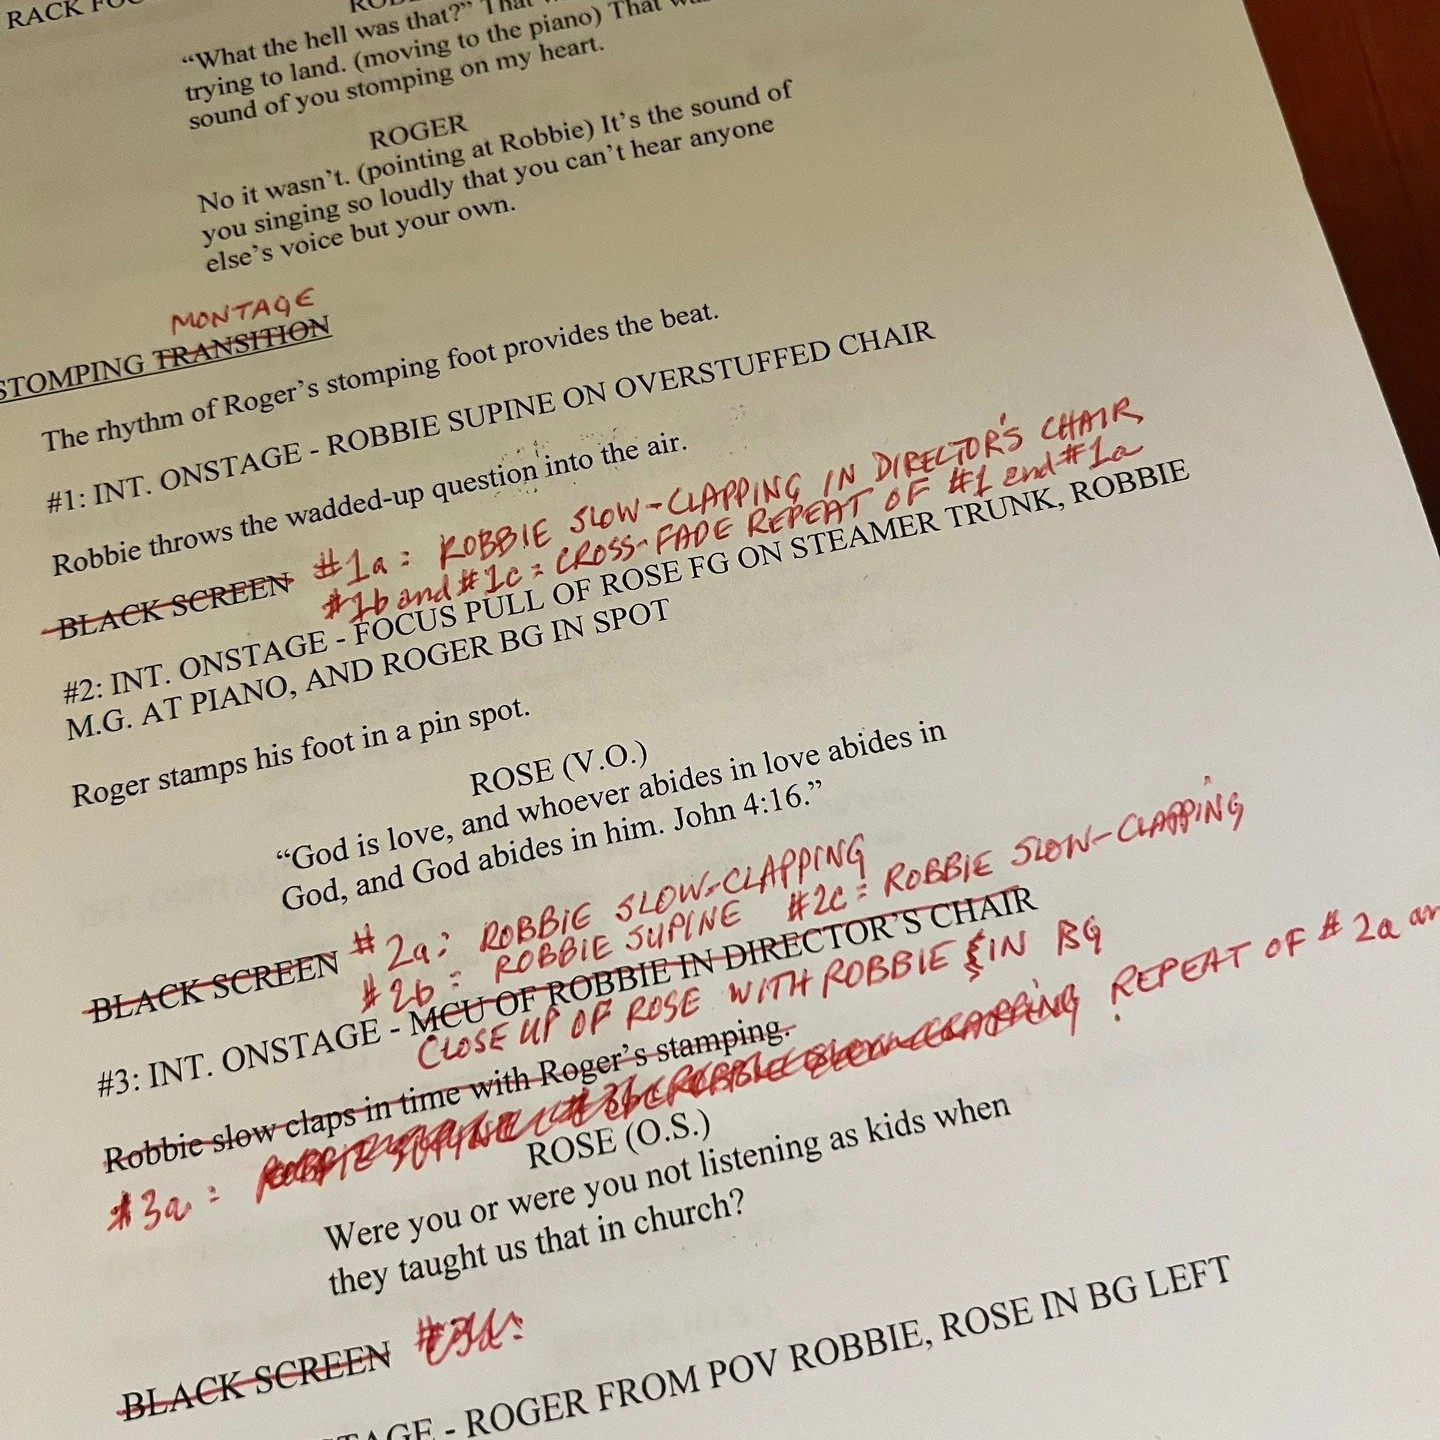 RACK
"What the hell was that?" That
trying to land. (moving to the piano) That
sound of you stomping on my heart.
ROGER
No it wasn't. (pointing at Robbie) It's the sound of
you singing so loudly that you can't hear anyone
else's voice but your own.
MONTAGE
STOMPING TRANSITION
The rhythm of Roger's stomping foot provides the beat.
#1: INT. ONSTAGE - ROBBIE SUPINE ON OVERSTUFFED CHAIR
Robbie throws the wadded-up question into the air.
#1a: ROBBIE SLOW-CLAPPING IN DIRECTOR'S CHAIR
BLACK SCREEN
#1b and #1c = CROSS-FADE REPEAT OF #1 and #1a
#2: INT. ONSTAGE - FOCUS PULL OF ROSE FG ON STEAMER TRUNK, ROBBIE
M.G. AT PIANO, AND ROGER BG IN SPOT
Roger stamps his foot in a pin spot.
ROSE (V.O.)
"God is love, and whoever abides in love abides in
God, and God abides in him. John 4:16."
#2a: ROBBIE SLOW-CLAPPING
BLACK SCREEN
#2b = ROBBIE SUPINE #2c = ROBBIE SLOW-CLAPPING
#3: INT. ONSTAGE - MCU OF ROBBIE IN DIRECTOR'S CHAIR
CLOSE UP OF ROSE WITH ROBBIE IN BG
Robbie slow claps in time with Roger's stamping.
#3a: ROBBIE SUPINE ROBBIE SLOW-CLAPPING REPEAT OF #2a
ROSE (O.S.)
Were you or were you not listening as kids when
they taught us that in church?
BLACK SCREEN
- ROGER FROM POV ROBBIE, ROSE IN BG LEFT